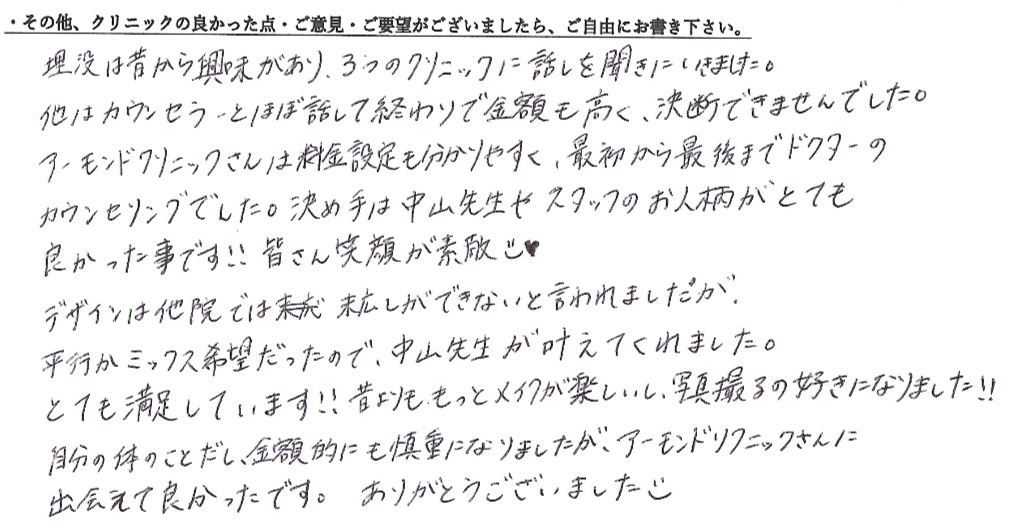 ・その他、クリニックの良かった点・ご意見・ご要望がございましたら、ご自由にお書き下さい。
埋没は昔から興味があり、3つのクリニックに話しを聞きにいきました。
他はカウンセラーとほぼ話して終わりで金額も高く、決断できませんでした。
アーモンドクリニックさんは料金設定も分かりやすく、最初から最後までドクターの
カウンセリングでした。決め手は中山先生や スタッフのお人柄がとても
良かった事です!! 皆さん笑顔が素敵
デザインは他院では 末広しができないと言われましたが、
平行かミックス希望だったので、中山先生が叶えてくれました。
とても満足しています!! 昔よりも、もっとメイクが楽しいし、写真撮るの好きになりました!!
自分の体のことだし、金額的にも慎重になりましたが、アーモンドクリニックさんに
出会えて良かったです。 ありがとうございました